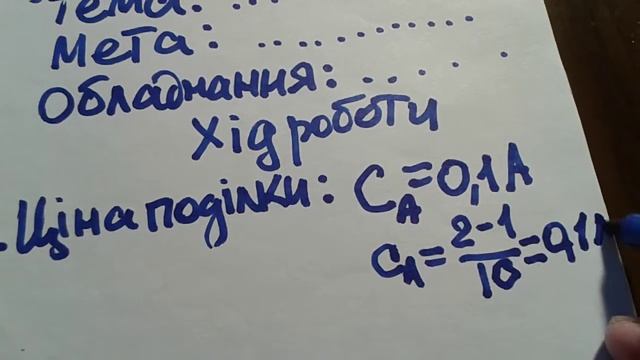 Тема: ...
Мета: ............
Обладнання: ......
Хід роботи
. Ціна поділки: C_A = 0,1A
C_A = 2-1/10 = 0,1